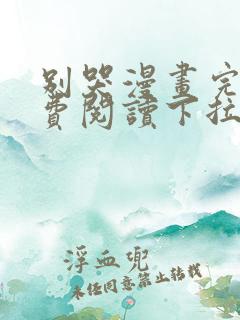 別哭漫畫完
費閱讀下拉
浮血兜
未经同意禁止转载